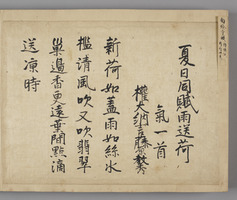 夏日同賦雨送荷
氣一首
權大納言藤
新荷如蓋雨如絲水
檻清風吹又吹翡翠
巢過香更遠葉間點滴
送凉時